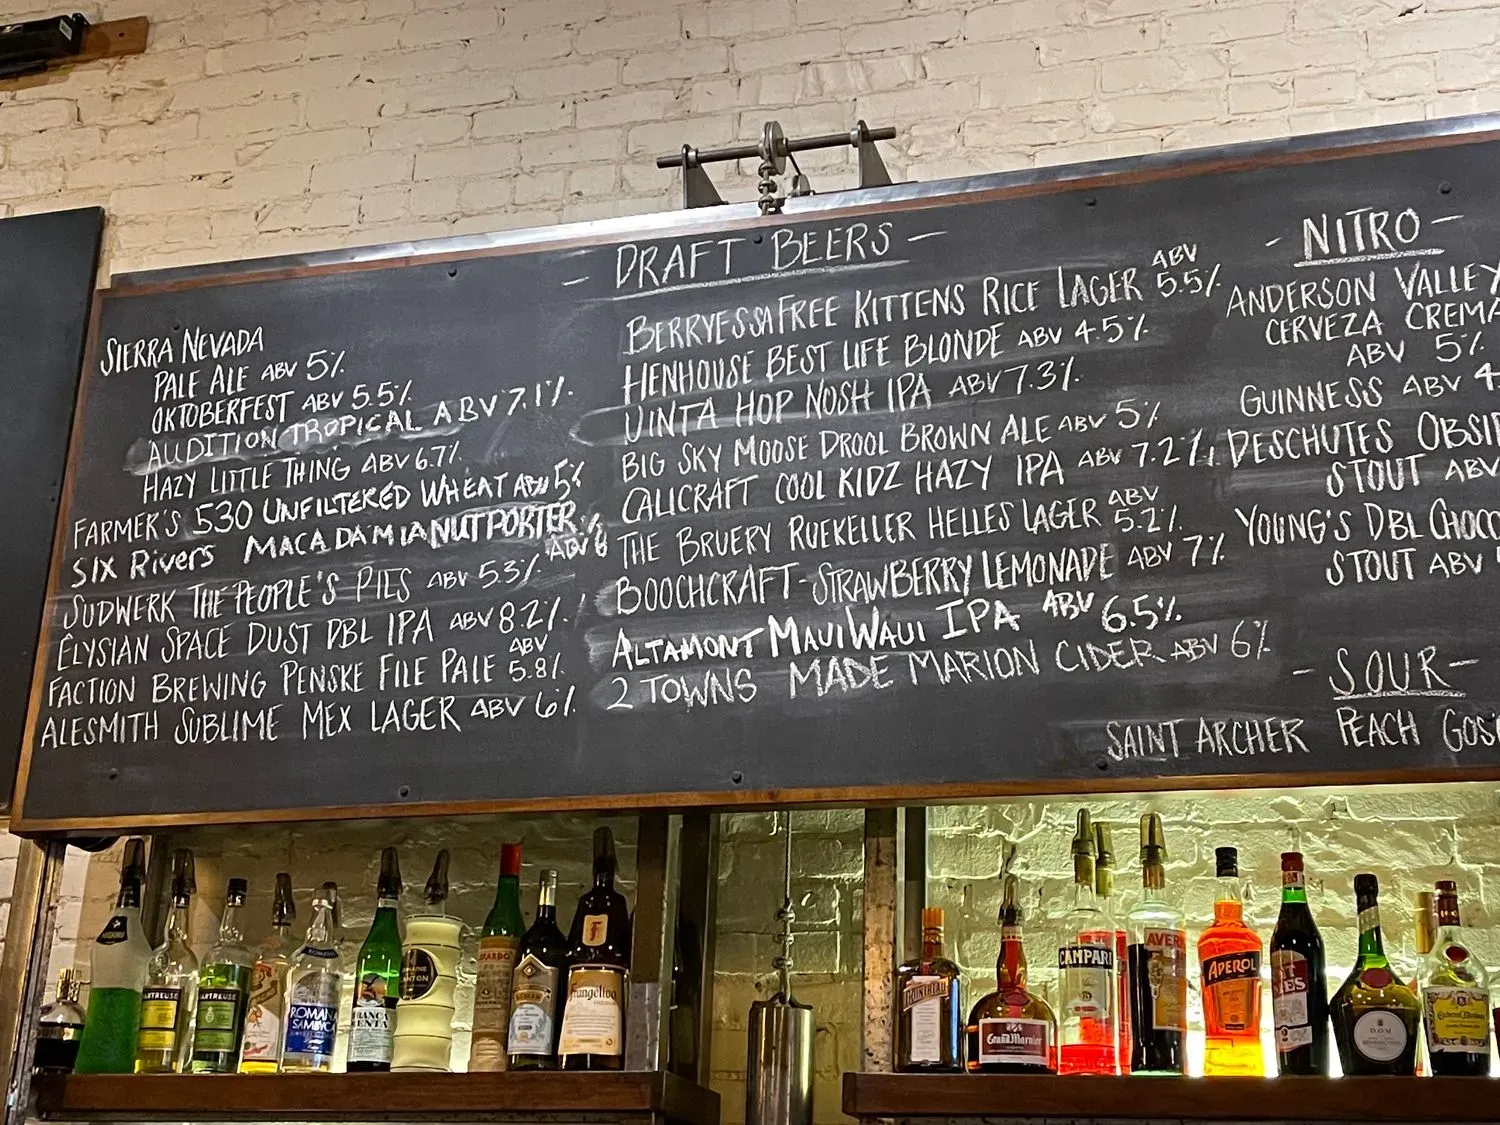 - DRAFT BEERS -
SIERRA NEVADA
PALE ALE ABV 5%
OKTOBERFEST ABV 5.5%
AUDITION TROPICAL ABV 7.1%
HAZY LITTLE THING ABV 6.7%
FARMER'S 530 UNFILTERED WHEAT ABV 5%
SIX RIVERS MACADAMIA NUT PORTER
ABV 6%
SUDWERK THE PEOPLE'S PILS ABV 5.3%
ELYSIAN SPACE DUST DBL IPA ABV 8.2%
FACTION BREWING PENSKE FILE PALE ABV 5.8%
ALESMITH SUBLIME MEX LAGER ABV 6%
BERRYESSA FREE KITTENS RICE LAGER ABV 5.5%
HENHOUSE BEST LIFE BLONDE ABV 4.5%
UINTA HOP NOSH IPA ABV 7.3%
BIG SKY MOOSE DROOL BROWN ALE ABV 5%
CALICRAFT COOL KIDZ HAZY IPA ABV 7.2%
THE BRUERY RUEKELLER HELLES LAGER ABV 5.2%
BOOCHCRAFT - STRAWBERRY LEMONADE ABV 7%
ALTAMONT MAUI WAUI IPA ABV 6.5%
2 TOWNS MADE MARION CIDER ABV 6%
- NITRO -
ANDERSON VALLEY
CERVEZA CREMA
ABV 5%
GUINNESS ABV 4
DESCHUTES OBSI
STOUT ABV
YOUNG'S DBL CHOC
STOUT ABV
- SOUR -
SAINT ARCHER PEACH GOS
ARTREUSE
ARTREUSE
ROMAN
SAMBUC
rangelico
GrandMarnier
CAMPARI
AVER
APEROL
D.O.M